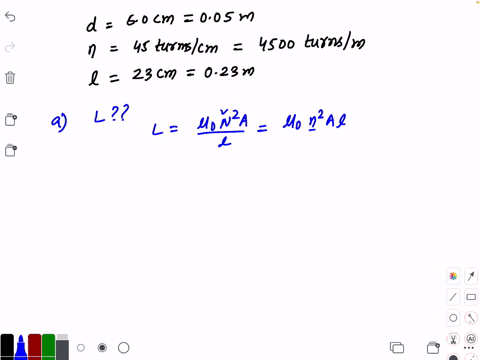 d = 5.0 cm = 0.05 m
η = 45 turns/cm = 4500 turns/m
l = 23 cm = 0.23 m
a) L ?? L = μ₀ N² A / l = μ₀ η² A l